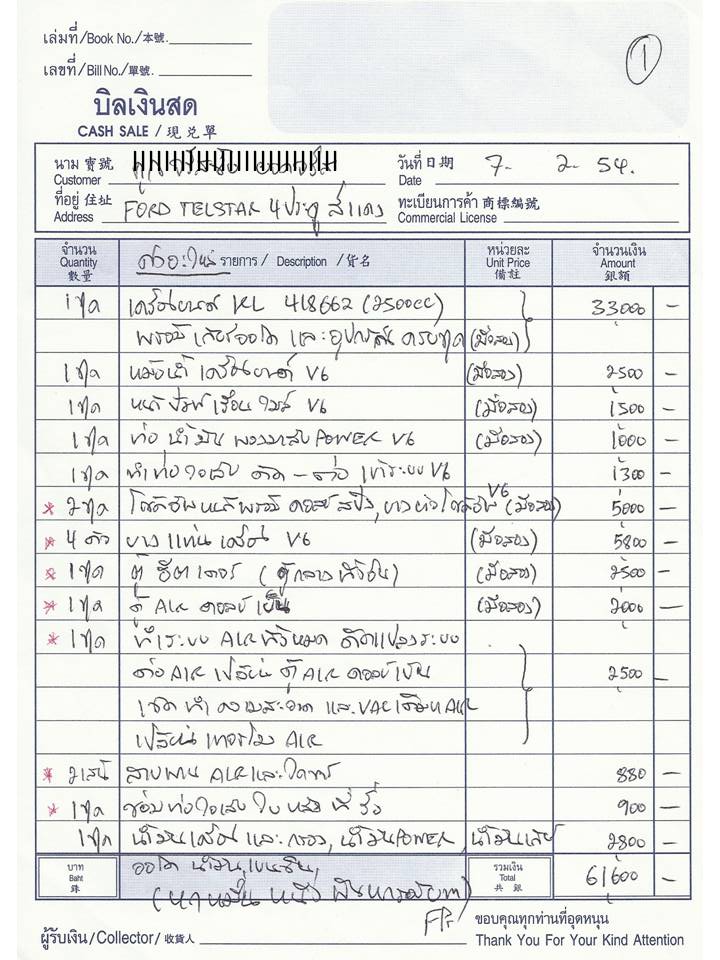 เล่มที่ /Book No./本號.
①
เลขที่ /Bill No./單號.
บิลเงินสด
CASH SALE / 現兑單
นาม 寶號
Customer
วันที่ 日期
Date
7 - 2 - 54.
ที่อยู่ 住址
Address
FORD TELSTAR 4ประตู สีแดง
ทะเบียนการค้า 商標編號
Commercial License
จำนวน
Quantity
數量
รายการ / Description / 貨名
หน่วยละ
Unit Price
備註
จำนวนเงิน
Amount
銀額
1 ชุด เครื่องยนต์ KL 418662 (2500cc) 33000 -
พร้อมเกียร์ออโต และอุปกรณ์ ครบชุด (มือสอง)
1 ชุด หม้อน้ำ เครื่องยนต์ V6 (มือสอง) 2500 -
1 ชุด V6 (มือสอง) 1500 -
1 ชุด ท่อ น้ำมัน พวงมาลัย POWER V6 (มือสอง) 1000 -
1 ชุด ทำท่อไอเสีย ตัด - ต่อ เข้าระบบ V6 1300 -
* 2 ชุด โช๊คอัพหน้าพร้อม คอยล์สปริง, V6 (มือสอง) 5000 -
* 4 ตัว ยาง แท่น เครื่อง V6 (มือสอง) 5800 -
* 1 ชุด ตู้ ฮีตเตอร์ (มือสอง) 2500 -
* 1 ชุด ตู้ AIR คอยล์ เย็น (มือสอง) 2000 -
* 1 ชุด ทำระบบ AIR ทั้งหมด ดัดแปลงระบบ
ต่อ AIR เปลี่ยน ตู้ AIR คอยล์เย็น 2500 -
เช็ด ทำ ความสะอาด และ VAC เติม AIR
เปลี่ยน เทอร์โม AIR
* 2 เส้น สายพาน AIR และ ไดชาร์จ 880 -
* 1 ชุด ซ่อมท่อไอเสีย ใบ หลัง ที่ รั่ว 900 -
1 ชุด น้ำมันเครื่อง และ กรอง, น้ำมัน POWER, น้ำมันเกียร์ 2800 -
ออโต น้ำมันเบนซิน,
บาท
Baht
銖
(หกหมื่น หนึ่ง พันหกร้อยบาท)
รวมเงิน
Total
共 銀
61600 -
ผู้รับเงิน /Collector/ 收貨人
ขอบคุณทุกท่านที่อุดหนุน
Thank You For Your Kind Attention